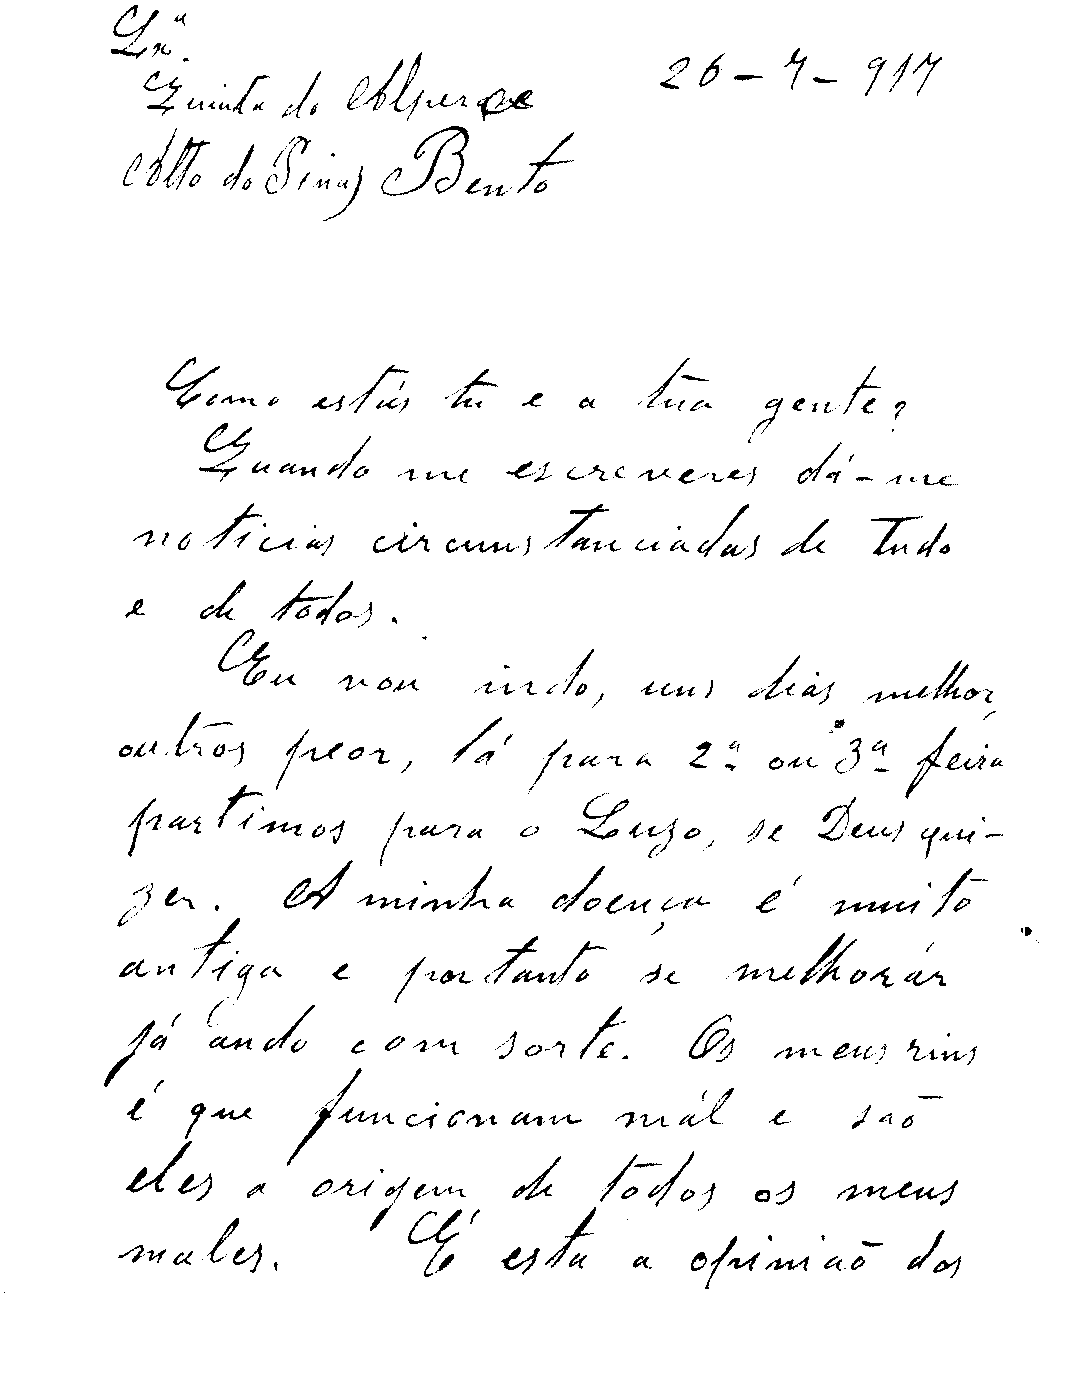 Lxª.
26-7-917
Quinta do Alperce
Alto do Pina
Bento
Como estás tu e a túa gente?
Quando me escreveres dá-me
noticias circumstanciadas de tudo
e de todos.
Eu vou indo, uns dias melhor,
outros peor, lá para 2ª ou 3ª feira
partimos para o Luzo, se Deus qui-
zer. A minha doença é muito
antiga e portanto se melhorár
já ando com sorte. Os meus rins
é que funcionam mál e são
eles a origem de todos os meus
males. É esta a opinião dos